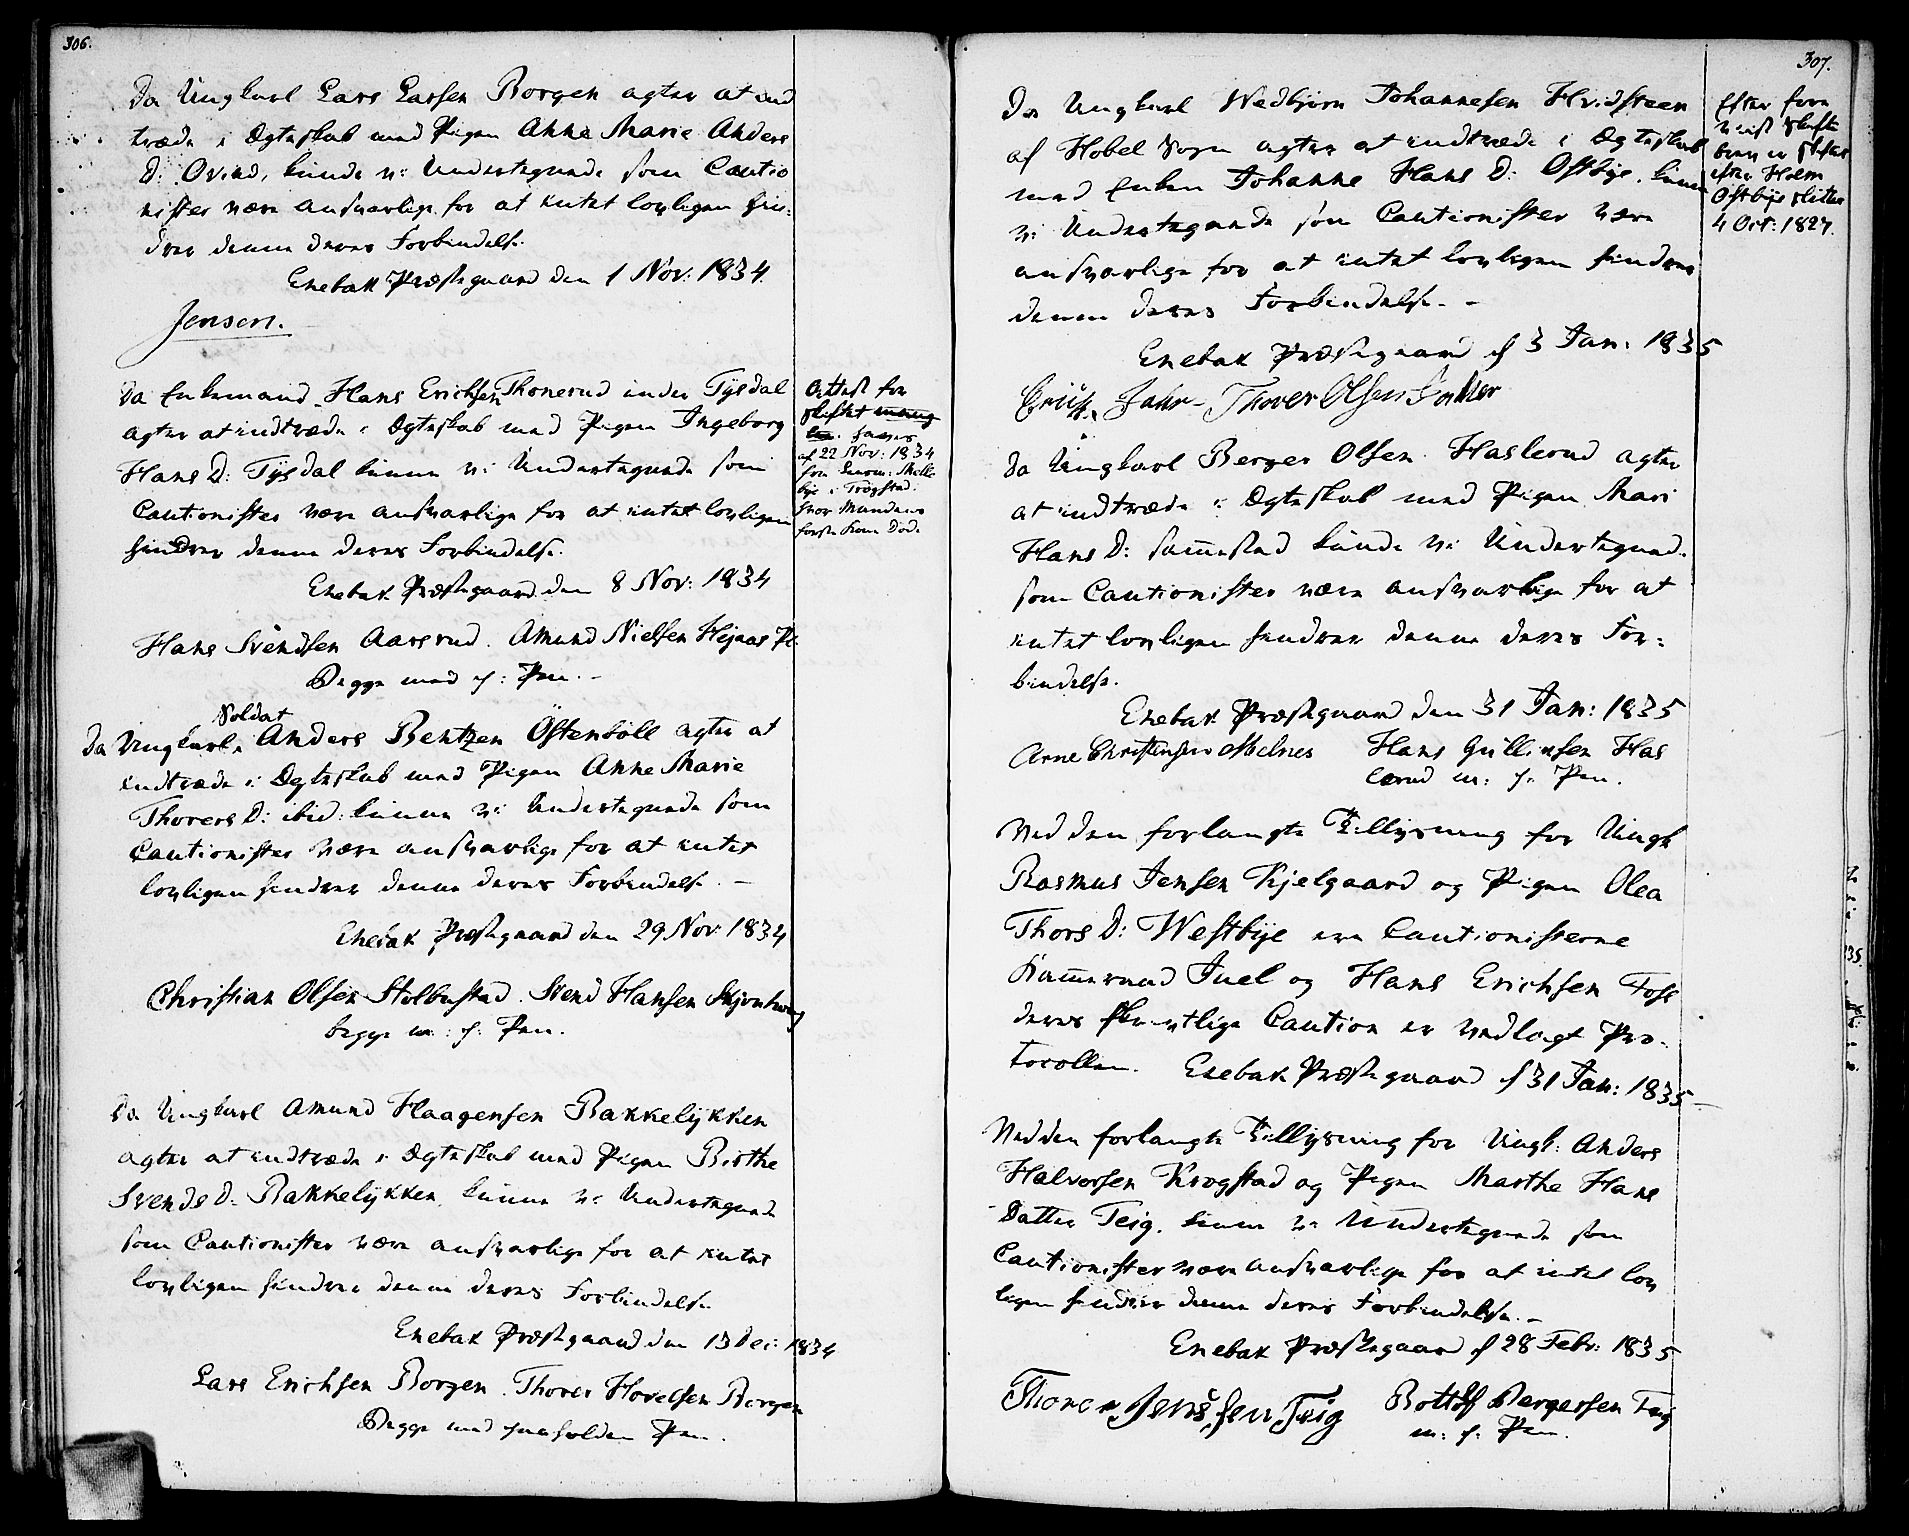 306.
Da Ungkarl Lars Larsen Borgen agter at ind
træde i Ægteskab med Pigen Anne Marie Anders
D: Ovind, kunde vi Undertegnede som Cautio
nister være ansvarlige for at intet lovligen hin:
drer denne deres Forbindelse.
Enebak Præstegaard den 1 Nov: 1834.
Jensen.
Da Enkemand Hans Erichsen Thonerud under Tysdal
agter at indtræde i Ægteskab med Pigen Ingeborg
Hans D: Tysdal kunne vi Undertegnede som
Cautionister være ansvarlige for at intet lovligen
hindrer denne deres Forbindelse.
Enebak Præstegaard den 8 Nov: 1834
Hans Svendsen Aarsrud. Amund Nielsen
Begge med f: Pen.
Attest for
skiftet
haves
af 22 Nov: 1834
fra
i Trøgstad
hvor Mandens
første Kone døde
Soldat
Da Ungkarl Anders Bentzen Østenböll agter at
indtræde i Ægteskab med Pigen Anne Marie
Thorers D: ibid: kunne vi Undertegnede som
Cautionister være ansvarlige for at intet
lovligen hindrer denne deres Forbindelse.
Enebak Præstegaard den 29 Nov 1834
Christian Olsen Stolbustad. Svend Hansen
begge m: f: Pen.
Da Ungkarl Amund Haagensen Bakkelykken
agter at indtræde i Ægteskab med Pigen Birthe
Svends D: Bakkelykken kunne vi Undertegnede
som Cautionister være ansvarlige for at intet
lovligen hindrer denne deres Forbindelse
Enebak Præstegaard den 13 Dec: 1834
Lars Erichsen Borgen. Thorer Hovelsen Borgen
Begge med paaholden Pen.
307.
Da Ungkarl Wedbjørn Johannesen Hvidsteen
af Hobel Sogn agter at indtræde i Ægteskab
med Enken Johanne Hans D: Østbye. kunne
vi Undertegnede som Cautionister være
ansvarlige for at intet lovligen hindrer
denne deres Forbindelse.
Enebak Præstegaard d 3 Jan: 1835
Thorer Olsen
Efter fore
viist Skifte
brev er skiftet
efter Holm
Østbye sluttet
4 Oct: 1827.
Da Ungkarl Berger Olsen Haslerud agter
at indtræde i Ægteskab med Pigen Mari
Hans D: sammested kunde vi Undertegnede
som Cautionister være ansvarlige for at
intet lovligen hindrer denne deres For:
bindelse.
Enebak Præstegaard den 31 Jan: 1835
Arne Christensen Melnes Hans Gulliksen Has
lerud m: f: Pen.
Ved den forlangte Tillysning for Ungk
Rasmus Jensen Kjelgaard og Pigen Olea
Thors D: Westbye ere Cautionisterne
Kammeraad Juel og Hans Erichsen Foss
deres skriftlige Caution er vedlagt Pro-
tocollen. Enebak Præstegaard d 31 Jan: 1835
Ved den forlangte Tillysning for Ungk: Anders
Halvorsen Krogstad og Pigen Marthe Hans
Datter Teig. kunne vi Undertegnede som
Cautionister være ansvarlige for at intet lov
ligen hindrer denne deres Forbindelse.
Enebak Præstegaard d 28 Febr: 1835
Thorer Jensen Teig Bottolf Bergersen Teig
m: f: Pen.